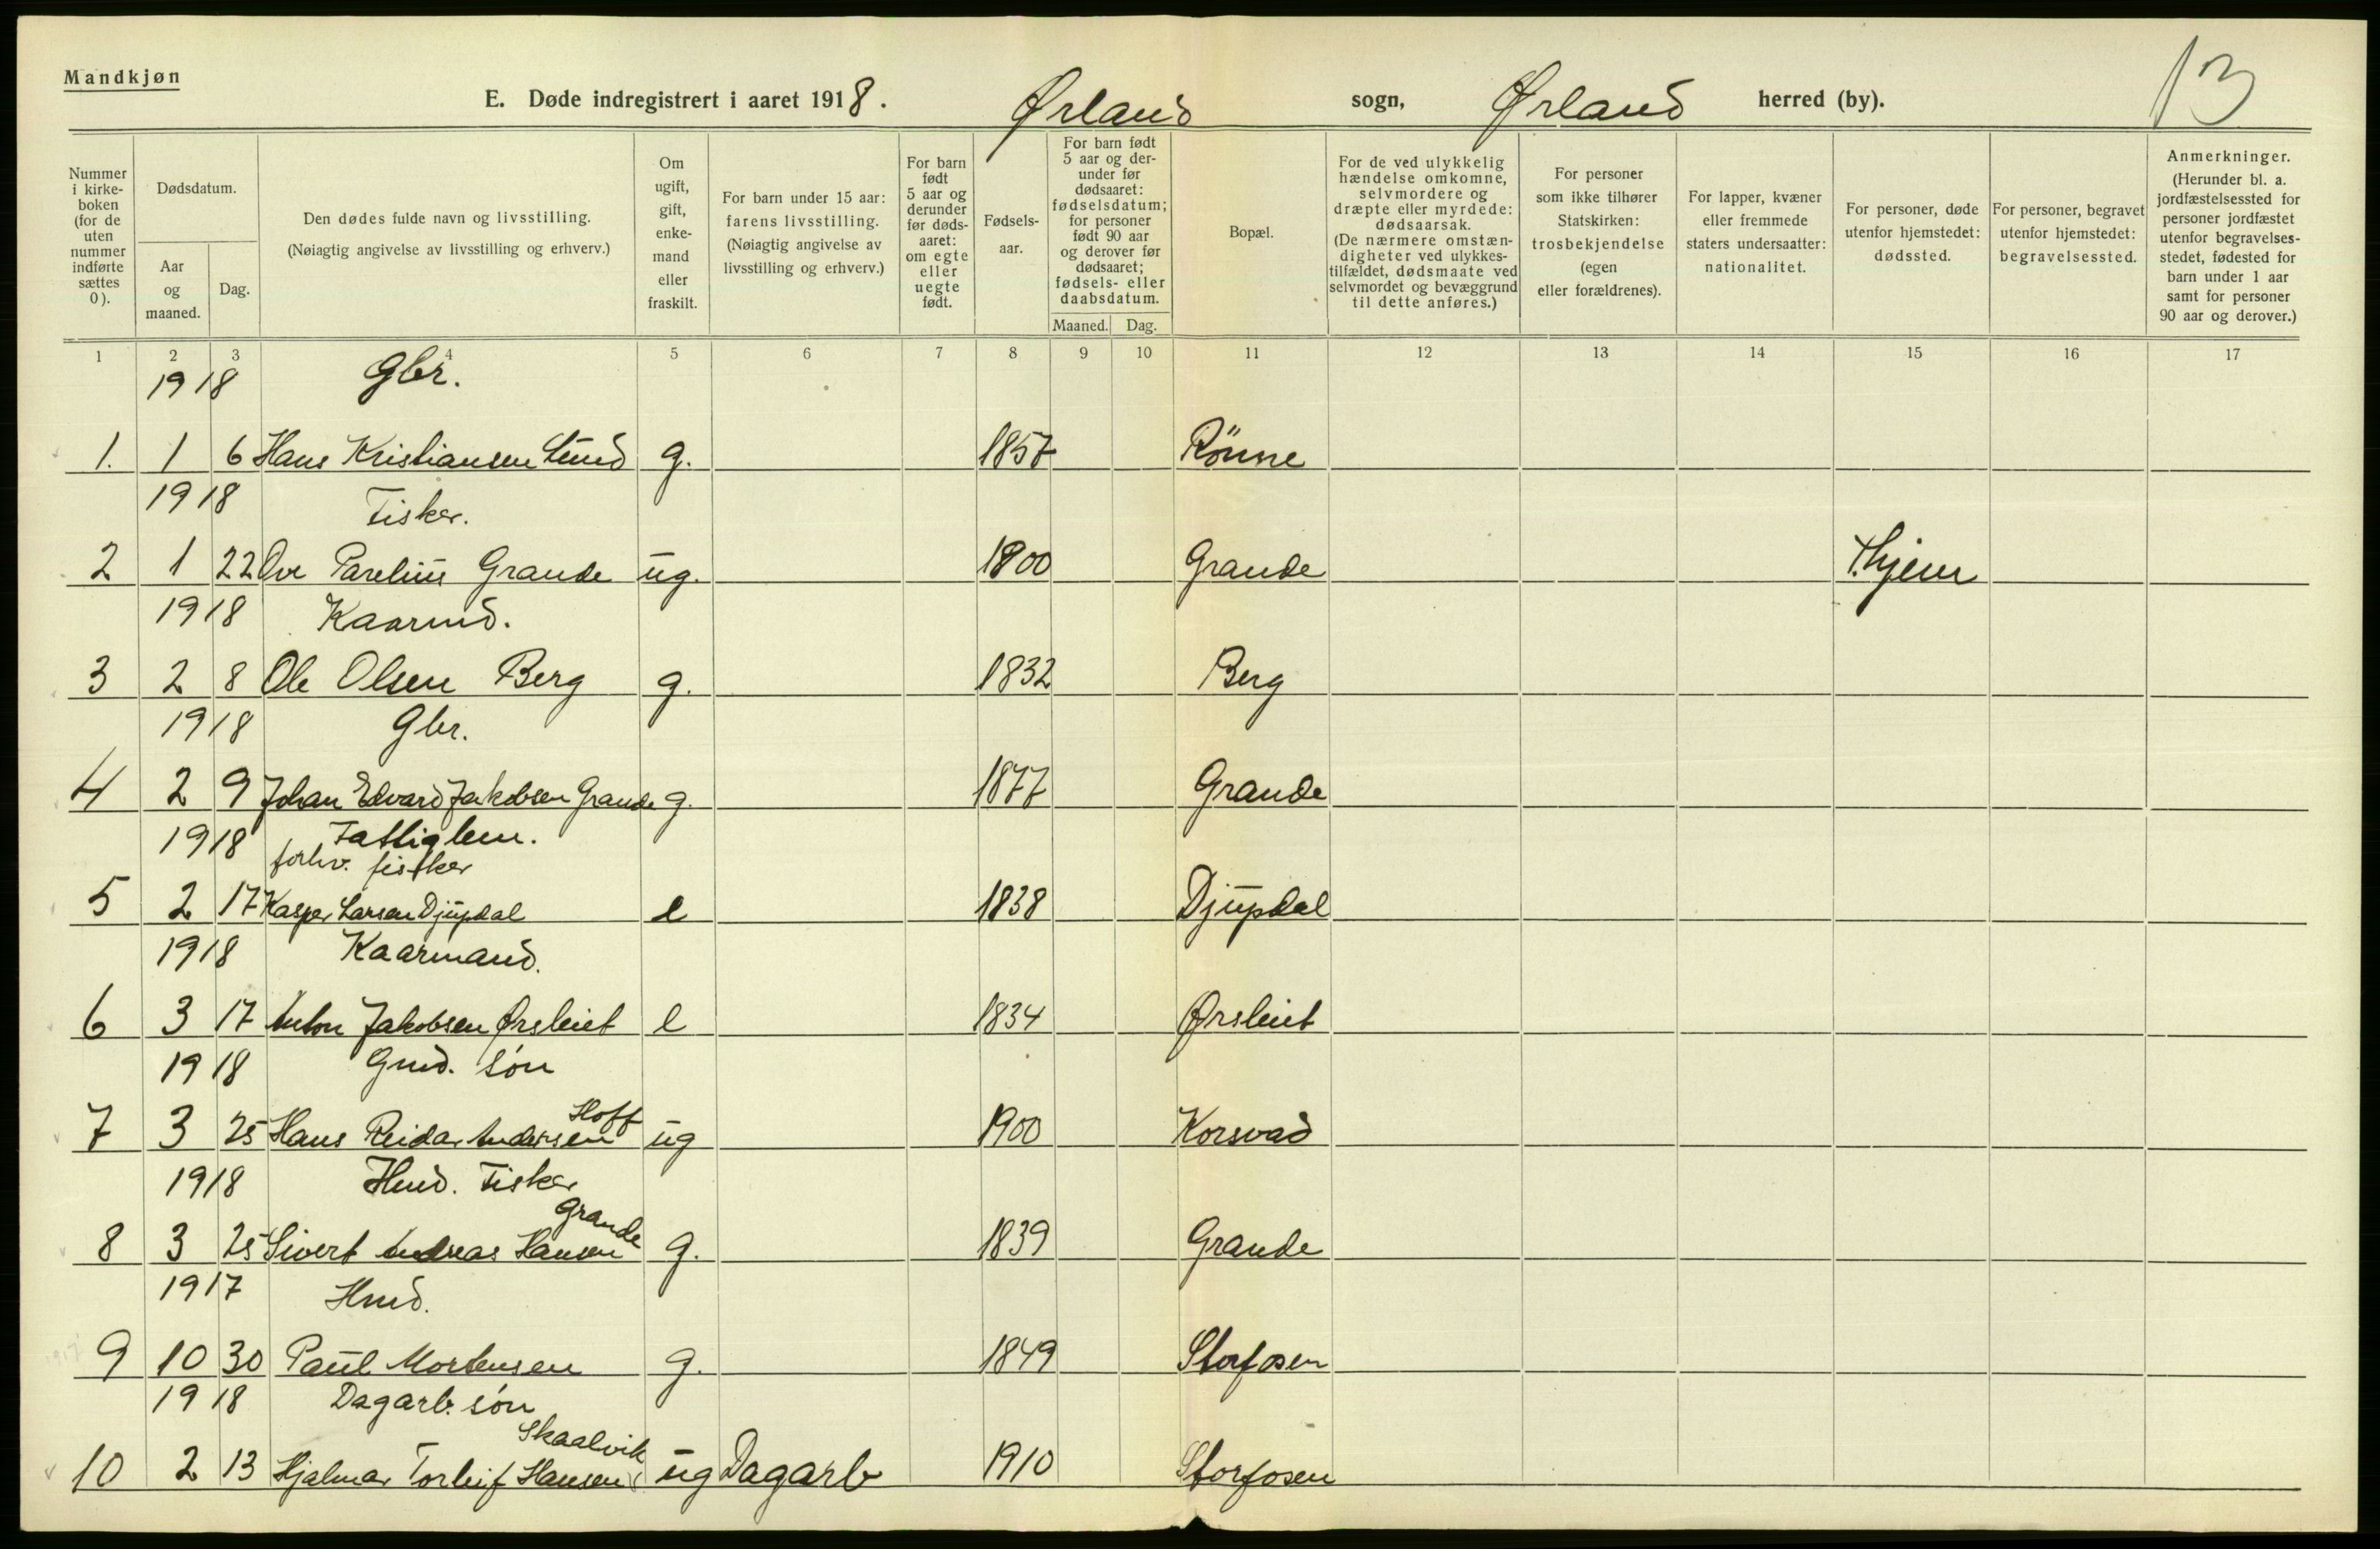 Mandkjøn
13
E. Døde indregistrert i aaret 1918. Ørland sogn, Ørland herred (by).
Nummer i kirke-boken (for de uten nummer indførte sættes 0).
Dødsdatum.
Aar og maaned.
Dag.
Den dødes fulde navn og livsstilling.
(Nøiagtig angivelse av livsstilling og erhverv.)
Om ugift, gift, enke-mand eller fraskilt.
For barn under 15 aar: farens livsstilling. (Nøiagtig angivelse av livsstilling og erhverv.)
For barn født 5 aar og derunder før døds-aaret: om egte eller uegte født.
Fødsels-aar.
For barn født 5 aar og der-under før dødsaaret: fødselsdatum; for personer født 90 aar og derover før dødsaaret; fødsels- eller daabsdatum.
Maaned. Dag.
Bopæl.
For de ved ulykkelig hændelse omkomne, selvmordere og dræpte eller myrdede: dødsaarsak. (De nærmere omstæn-digheter ved ulykkes-tilfældet, dødsmaate ved selvmordet og bevæggrund til dette anføres.)
For personer som ikke tilhører Statskirken: trosbekjendelse (egen eller forældrenes).
For lapper, kvæner eller fremmede staters undersaatter: nationalitet.
For personer, døde utenfor hjemstedet: dødssted.
For personer, begravet utenfor hjemstedet: begravelsessted.
Anmerkninger. (Herunder bl. a. jordfæstelsessted for personer jordfæstet utenfor begravelses-stedet, fødested for barn under 1 aar samt for personer 90 aar og derover.)
1 2 3 4 5 6 7 8 9 10 11 12 13 14 15 16 17
1918 Gbr.
1. 1 6 Hans Kristiansen Lund g. 1857 Rönne
1918 Fisker.
2 1 22 Ove Parelius Grande ug. 1900 Grande T.hjem
1918 Kaarmd.
3 2 8 Ole Olsen Berg g. 1832 Berg
1918 Gbr.
4 2 9 Johan Edvard Jakobsen Grande g. 1877 Grande
1918 Fattiglem.
forhv. fisker
5 2 17 Kasper Larsen Djupdal e 1838 Djupdal
1918 Kaarmand.
6 3 17 Anton Jakobsen Ørsleiet e 1834 Ørsleiet
1918 Gmd. søn
7 3 25 Hans Reidar Andersen Hoff ug 1900 Korsvad
1918 Hmd. Fisker
8 3 25 Sivert Andreas Hansen Grande g. 1839 Grande
1917 Hmd.
9 10 30 Paul Mortensen g. 1849 Storfosen
1918 Dagarb. søn
10 2 13 Hjalmar Torleif Hansen Skaalvik ug Dagarb 1910 Storfosen